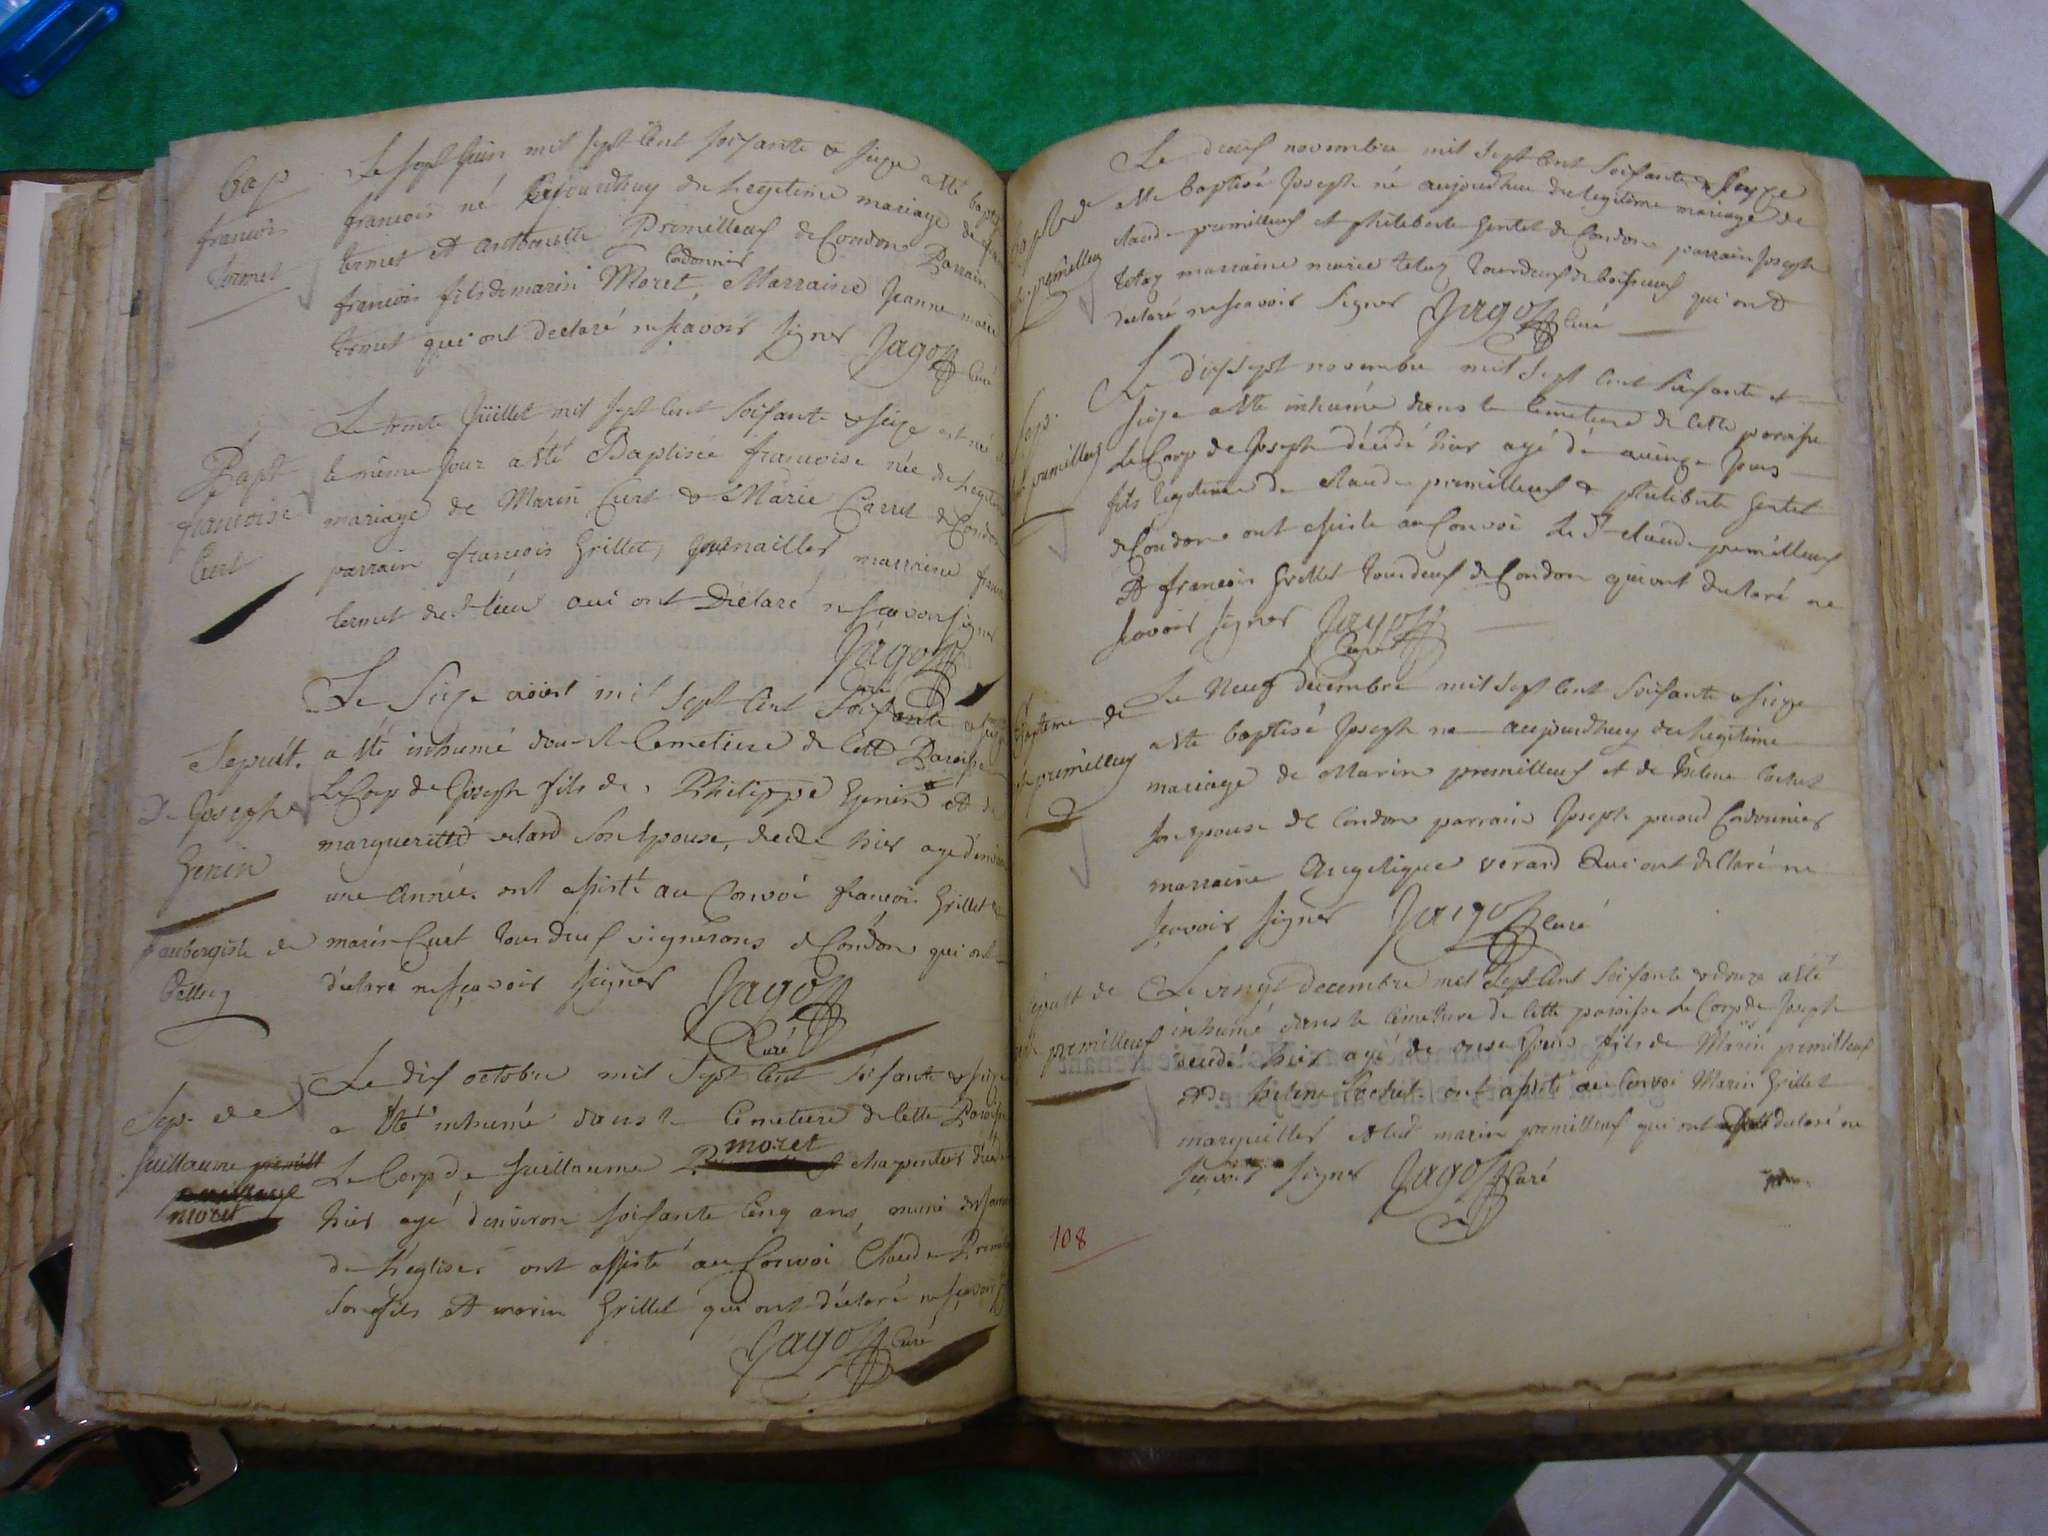 Bap
francois
termet
Le sept juin mil sept cent soisante & seize a été bapt
francois né aujourdhuy du Legitime mariage de
termet et antoinette Premilleuf de Condon Parrain
Cordonnier
francois fils de marin Moret, Marraine Jeanne marie
termet qui ont declaré ne sçavoir signer Jagot
Curé
Bapt
francoise
Curt
Le trente Juillet mil sept cent soisante & seize est né
le même jour a été Baptisée francoise née de Legitime
mariage de Marin Curt & Marie Carret de Condon
parrain françois Grillet, marraine
termet du lieu qui ont Déclaré ne sçavoir signer
Jagot
Curé
Sepult.
De Joseph
Genin
aubergiste de
Belley
Le Seize aoust mil sept cent soisante & seize
a été inhumé dans le Cemetiere de cette Paroisse
Le Corp de Joseph fils de Philippe Genin et de
margueritte son epouse, decedé hier agé d'environ
une année. ont assisté au Convoi francois Grillet &
marin Curt tous deux vignerons de Condon qui ont
déclaré ne sçavoir signer Jagot
Curé
Sep. de
Guillaume
moret
Le dix octobre mil sept cent soisante & seize
a été inhumé dans le Cemetiere de cette Paroisse
moret
Le Corp de Guillaume charpentier décédé
hier agé d'environ soisante cinq ans, muni des
de L'église. ont assisté au Convoi Claude
son fils et marin Grillet qui ont déclaré ne sçavoir
Jagot Curé
Bapt de
premilleuf
Le deux novembre mil sept cent soisante & seize
a été baptisé Joseph né aujourdhui du legitime mariage de
claude premilleuf et philiberte Gentet de Condon parrain Joseph
marraine marie tous deux de qui ont
declaré ne sçavoir signer Jagot Curé
Sep.
premilleuf
Le dixsept novembre mil sept cent soisante et
seize a été inhumé dans le Cemetiere de cette paroisse
Le Corp de Joseph décédé hier agé de quinze jours
fils legitime de claude premilleuf & philiberte Gentet
de Condon ont assisté au Convoi Le dt claude premilleuf
et francois Grillet tous deux de Condon qui ont declaré ne
sçavoir signer Jagot
Curé
Bapteme de
premilleuf
Le Neuf decembre mil sept cent soisante & seize
a été baptisé Joseph né aujourdhuy du Legitime
mariage de Marin premilleuf et de helene Cochet
son epouse de Condon parrain Joseph Cordonnier
marraine Angelique verard Qui ont declaré ne
sçavoir signer Jagot Curé
Sepult de
premilleuf
Le vingt decembre mil sept cent soisante & douze a été
inhumé dans le Cimetiere de cette paroisse Le Corp de Joseph
decedé hier agé de onze jours fils de Marin premilleuf
et de helene Cochet. ont assisté au Convoi Marin Grillet
marguiller et led marin premilleuf qui ont declaré ne
sçavoir signer Jagot Curé
108